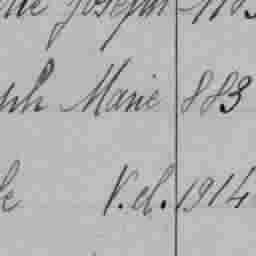 Joseph
ph Marie 883
le V.el. 1914